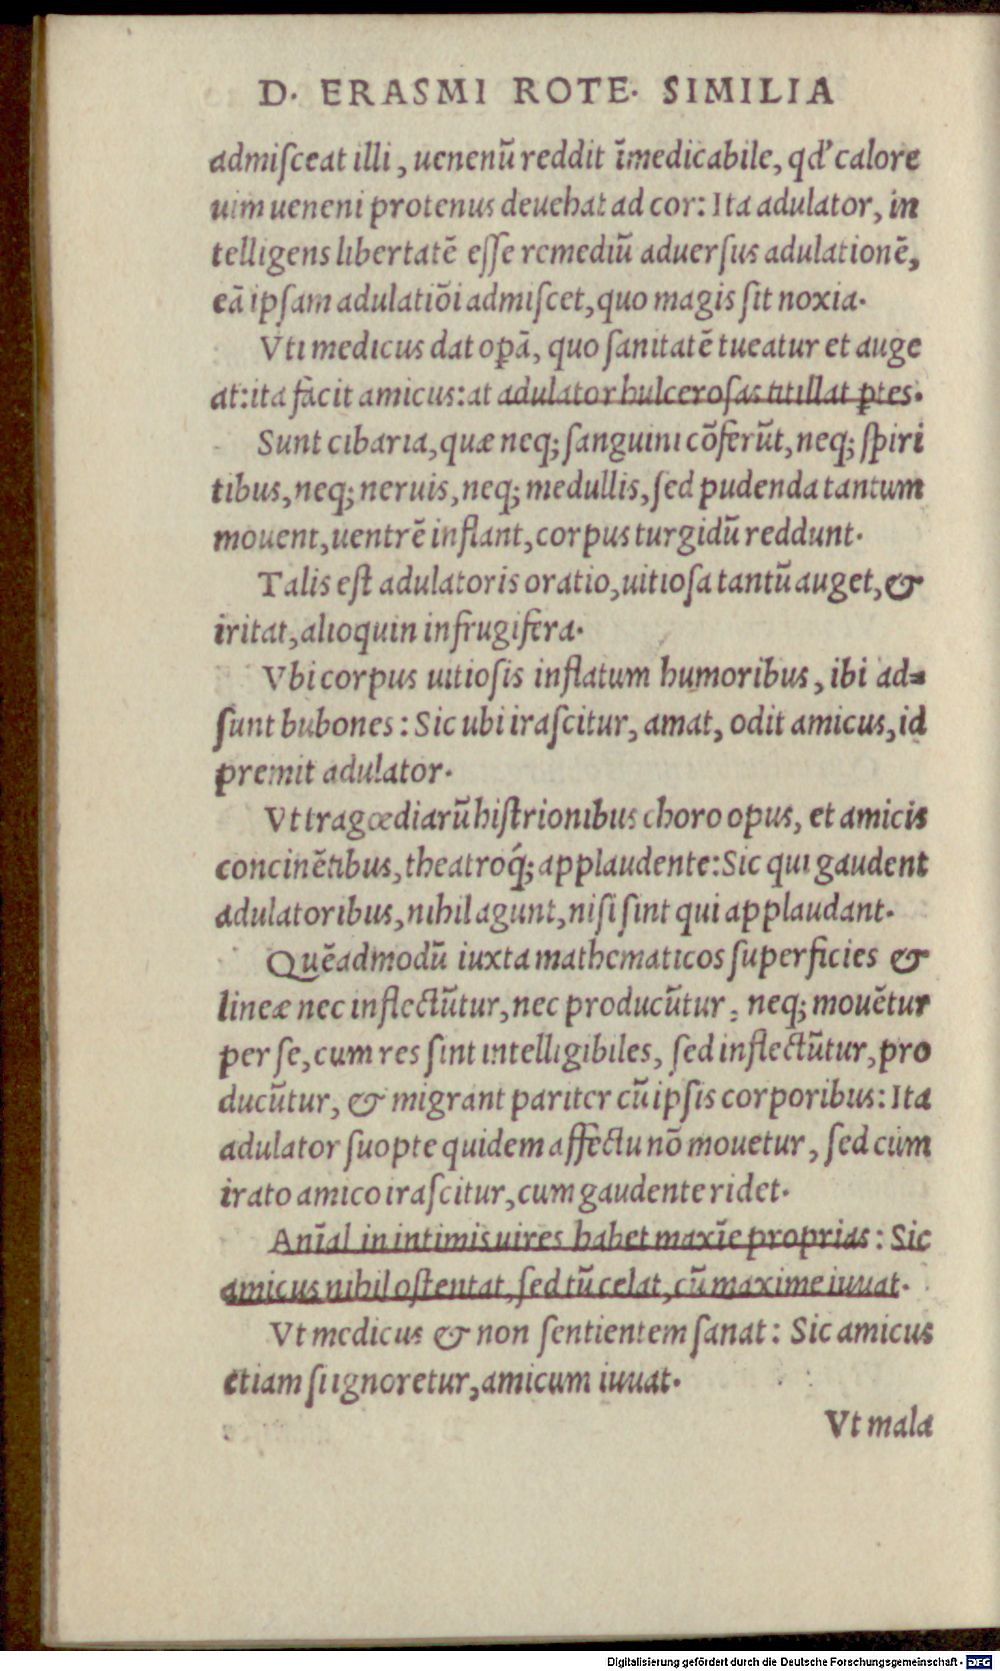 D. ERASMI ROTE. SIMILIA
admiſceat illi, uenenũ reddit ĩmedicabile, qd' calore
uim ueneni protenus deuehat ad cor: Ita adulator, in
telligens libertatẽ eſſe remediũ aduerſus adulationẽ,
eã ipſam adulatiõi admiſcet, quo magis ſit noxia.
Vti medicus dat opã, quo ſanitatẽ tueatur et auge
at: ita facit amicus: at adulator hulceroſas titillat ꝑtes.
Sunt cibaria, quæ neq; ſanguini cõferũt, neq; ſpiri
tibus, neq; neruis, neq; medullis, ſed pudenda tantum
mouent, uentrẽ inflant, corpus turgidũ reddunt.
Talis eſt adulatoris oratio, uitioſa tantũ auget, &
iritat, alioquin infrugifera.
Vbi corpus uitioſis inflatum humoribus, ibi ad=
ſunt bubones: Sic ubi iraſcitur, amat, odit amicus, id
premit adulator.
Vt tragœdiarũ hiſtrionibus choro opus, et amicis
concinẽtibus, theatroq́; applaudente: Sic qui gaudent
adulatoribus, nihil agunt, niſi ſint qui applaudant.
Quẽadmodũ iuxta mathematicos ſuperficies &
lineæ nec inflectũtur, nec producũtur, neq; mouẽtur
per ſe, cum res ſint intelligibiles, ſed inflectũtur, pro
ducũtur, & migrant pariter cũ ipſis corporibus: Ita
adulator ſuopte quidem affectu nõ mouetur, ſed cum
irato amico iraſcitur, cum gaudente ridet.
Anĩal in intimis uires habet maxĩe proprias: Sic
amicus nihil oſtentat, ſed tũ celat, cũ maxime iuuat.
Vt medicus & non ſentientem ſanat: Sic amicus
etiam ſi ignoretur, amicum iuuat.
Vt mala
Digitalisierung gefördert durch die Deutsche Forschungsgemeinschaft - DFG